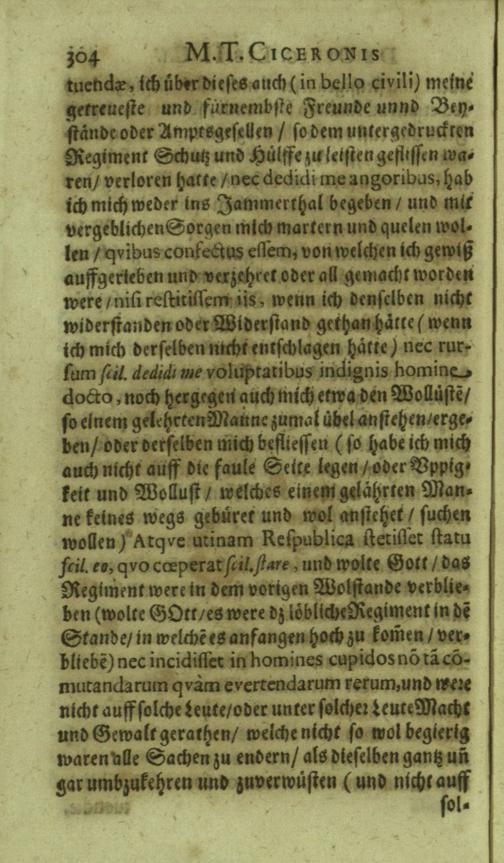 304 M. T. CICERONIS
tuendæ, ich über dieses auch (in bello civili) meine
getreueste und fürnembste Freunde unnd Bey-
stände oder Amptsgesellen / so dem untergedruckten
Regiment Schutz und Hülffe zu leisten geflissen wa-
ren / verloren hatte / nec dedidi me angoribus, hab
ich mich weder ins Jammerthal begeben / und mit
vergeblichen Sorgen mich martern und quelen wol-
len / qvibus confectus essem, von welchen ich gewiß
auffgerieben und verzehret oder all gemacht worden
were / nisi restitissem iis, wenn ich denselben nicht
widerstanden oder Widerstand gethan hätte (wenn
ich mich derselben nicht entschlagen hätte) nec rur-
sum scil. dedidi me voluptatibus indignis homine
docto, noch hergegen auch mich etwa den Wollüstē /
so einem gelehrten Manne zumal übel anstehen / erge-
ben / oder derselben mich befliessen (so habe ich mich
auch nicht auff die faule Seite legen / oder Vppig-
keit und Wollust / welches einem gelährten Man-
ne keines wegs gebüret und wol anstehet / suchen
wollen) Atqve utinam Respublica stetisset statu
scil. eo, qvo cœperat scil. stare, und wolte Gott / das
Regiment were in dem vorigen Wolstande verblie-
ben (wolte GOtt / es were dz löbliche Regiment in dē
Stande / in welchē es anfangen hoch zu kom̄en / ver-
bliebē) nec incidisset in homines cupidos nō tā cō-
mutandarum qvàm evertendarum rerum, und were
nicht auff solche Leute / oder unter solcher Leute Macht
und Gewalt gerathen / welche nicht so wol begierig
waren alle Sachen zu endern / als dieselben gantz uñ
gar umbzukehren und zuverwüsten (und nicht auff
sol-